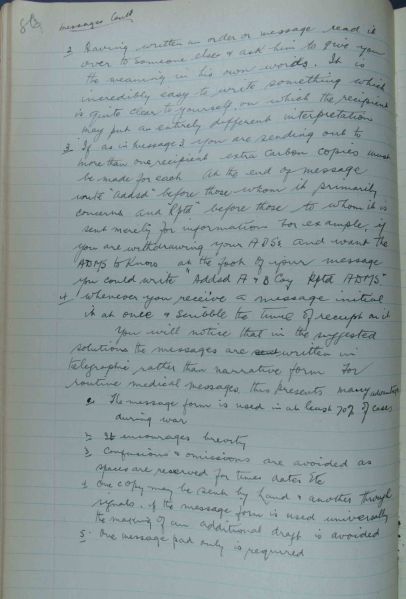 messages Contd
2 Having written an order or message read it
over to someone else & ask him to give you
the meaning in his own words. It is
incredibly easy to write something which
is quite clear to yourself, on which the recipient
may put an entirely different interpretation
3 If as in message 2 you are sending out to
more than one recipient extra carbon copies must
be made for each At the end of message
write "Addsd" before those whom it primarily
concerns and Rptd" before those to whom it is
sent merely for information For example, if
you are withdrawing your ADSs and want the
ADMS to know at the foot of your message
you could write "Addsd A & B Coy Rptd ADMS"
4 Whenever you receive a message initial
it at once & scribble the time of receipt on it
You will notice that in the suggested
solutions the messages are written in
telegraphic rather than narrative form For
routine medical messages this presents many advantages
The message form is used in at least 70% of cases
during war
2 It encourages brevity
3 Confusions & omissions are avoided as
spaces are reserved for times dates Etc
4 One copy may be sent by hand & another through
signals. If the message form is used universally
the making of an additional draft is avoided
5. One message pad only is required